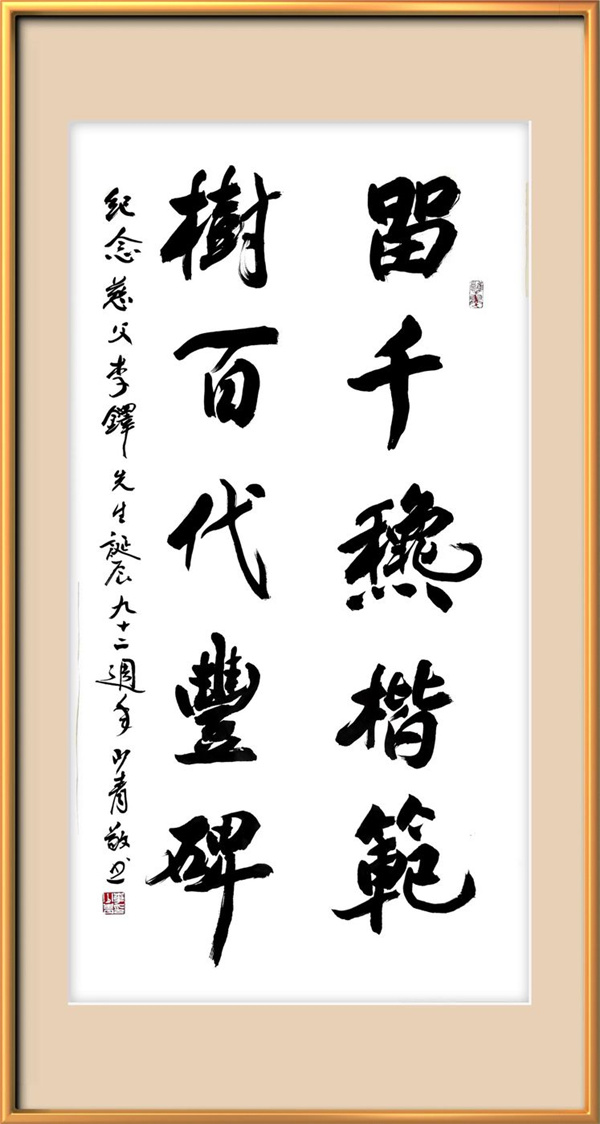 留千龝楷範
樹百代豐碑
紀念慈父李鐸先生誕辰九十二週年山青敬书